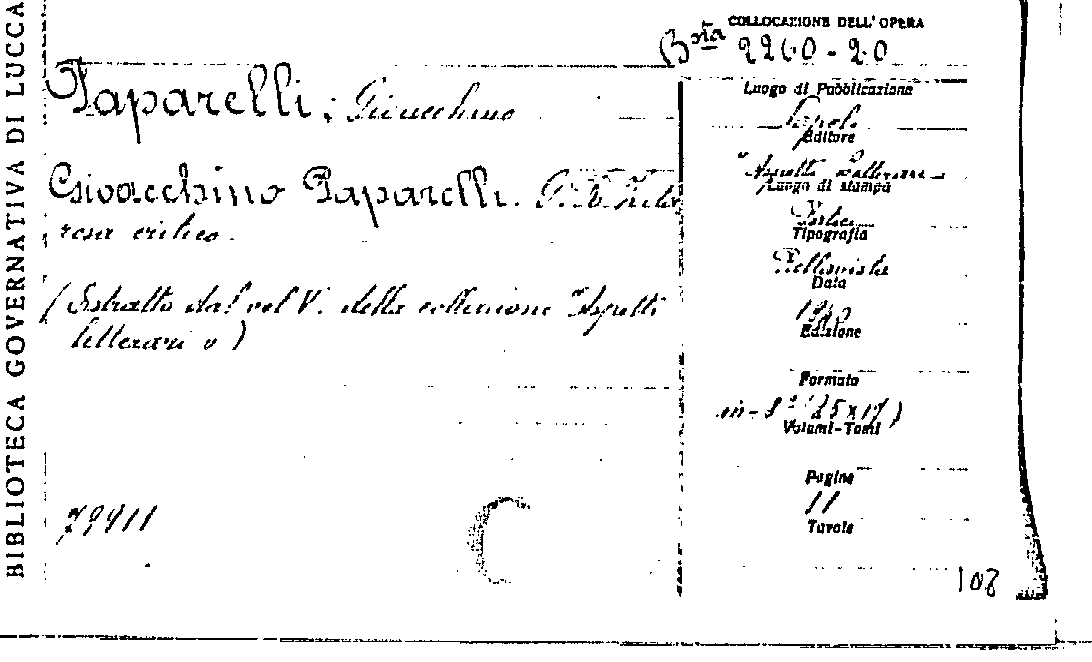 BIBLIOTECA GOVERNATIVA DI LUCCA
COLLOCAZIONE DELL'OPERA
Bsta 2260-20
Paparelli, Gioacchino
Gioacchino Paparelli.
critico.
(Estratto dal vol V. della collezione "Aspetti
letterari")
79911
Luogo di Pubblicazione
Napoli
Editore
"Aspetti Letterari"
Luogo di stampa
Portici
Tipografia
Bellavista
Data
Edizione
Formato
in-8° (25x17)
Volumi-Tomi
Pagine
11
Tavole
108